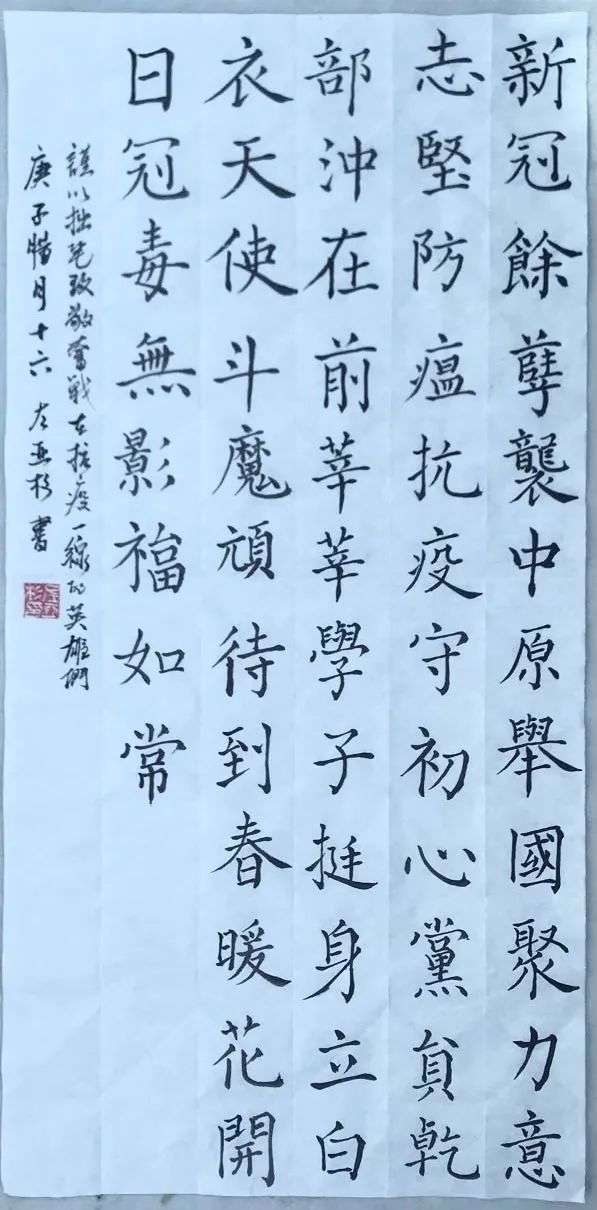 新冠餘孽襲中原舉國聚力意
志堅防瘟抗疫守初心黨員乾
部沖在前莘莘學子挺身立白
衣天使斗魔頑待到春暖花開
日冠毒無影福如常
謹以拙筆致敬奮戰在抗疫一線的英雄們
庚子腊月十六 左亚杉書